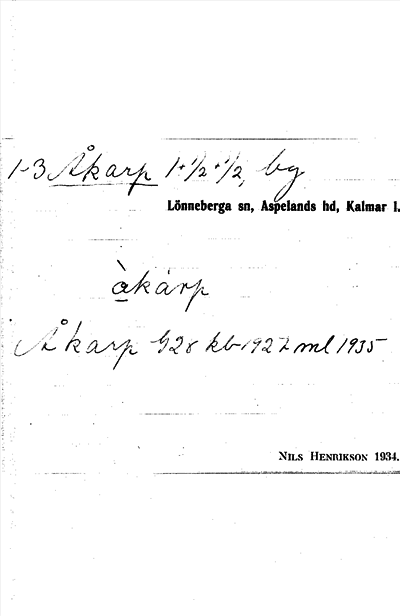 1-3 Åkarp 1+1/2+1/2, bg
Lönneberga sn, Aspelands hd, Kalmar l.
àkàrp
Åkarp G28 kb 1927 ml 1935
NILS HENRIKSON 1934.